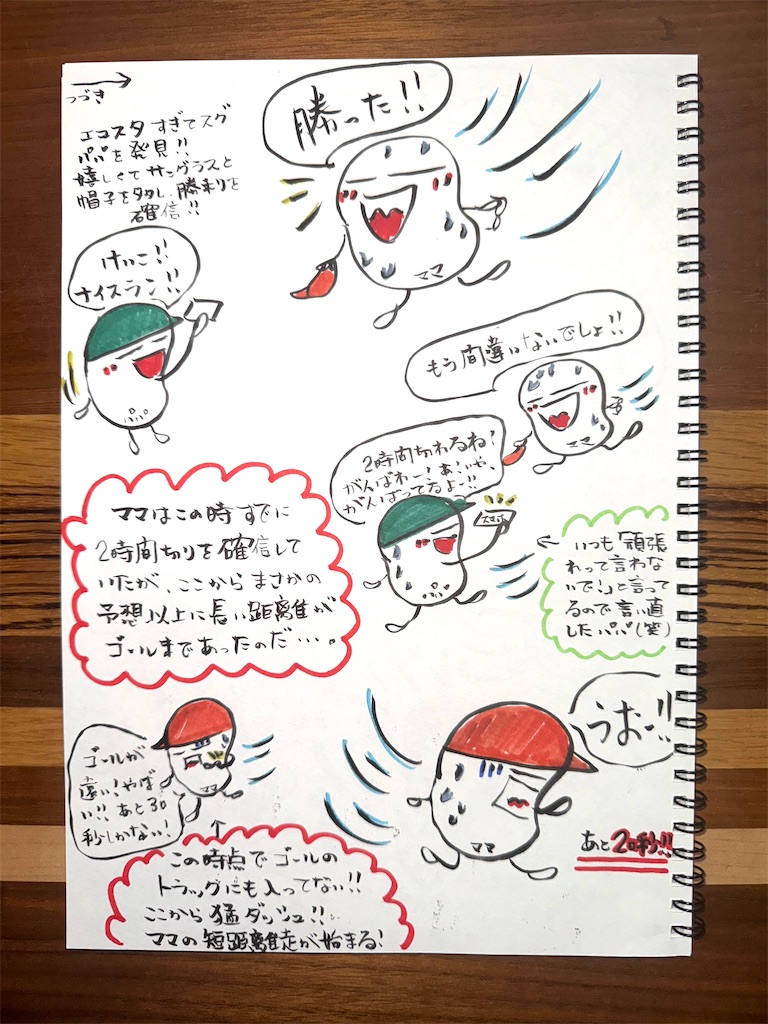 つづき
エコスタすぎてスグ
パパを発見!!
嬉しくてサングラスと
帽子をタタし、勝利を
確信!!
勝った!!
ママ
けいこ!!
ナイスラン!!
パパ
もう間違いないでしょ!!
ママ
2時間切れるね!
がんばれー!あ!いや、
がんばってるよー!!
スマホ
パパ
ママはこの時すでに
2時間切りを確信して
いたが、ここからまさかの
予想以上に長い距離が
ゴールまであったのだ…。
いつも「頑張
れって言わな
いで!」と言って
るので言い直
したパパ(笑)
ゴールが
遠い!やば
い!!あと30
秒しかない!
ママ
この時点でゴールの
トラックにも入ってない!!
ここから猛ダッシュ!!
ママの短距離走が始まる!
うおー!!
ママ
あと20秒!!